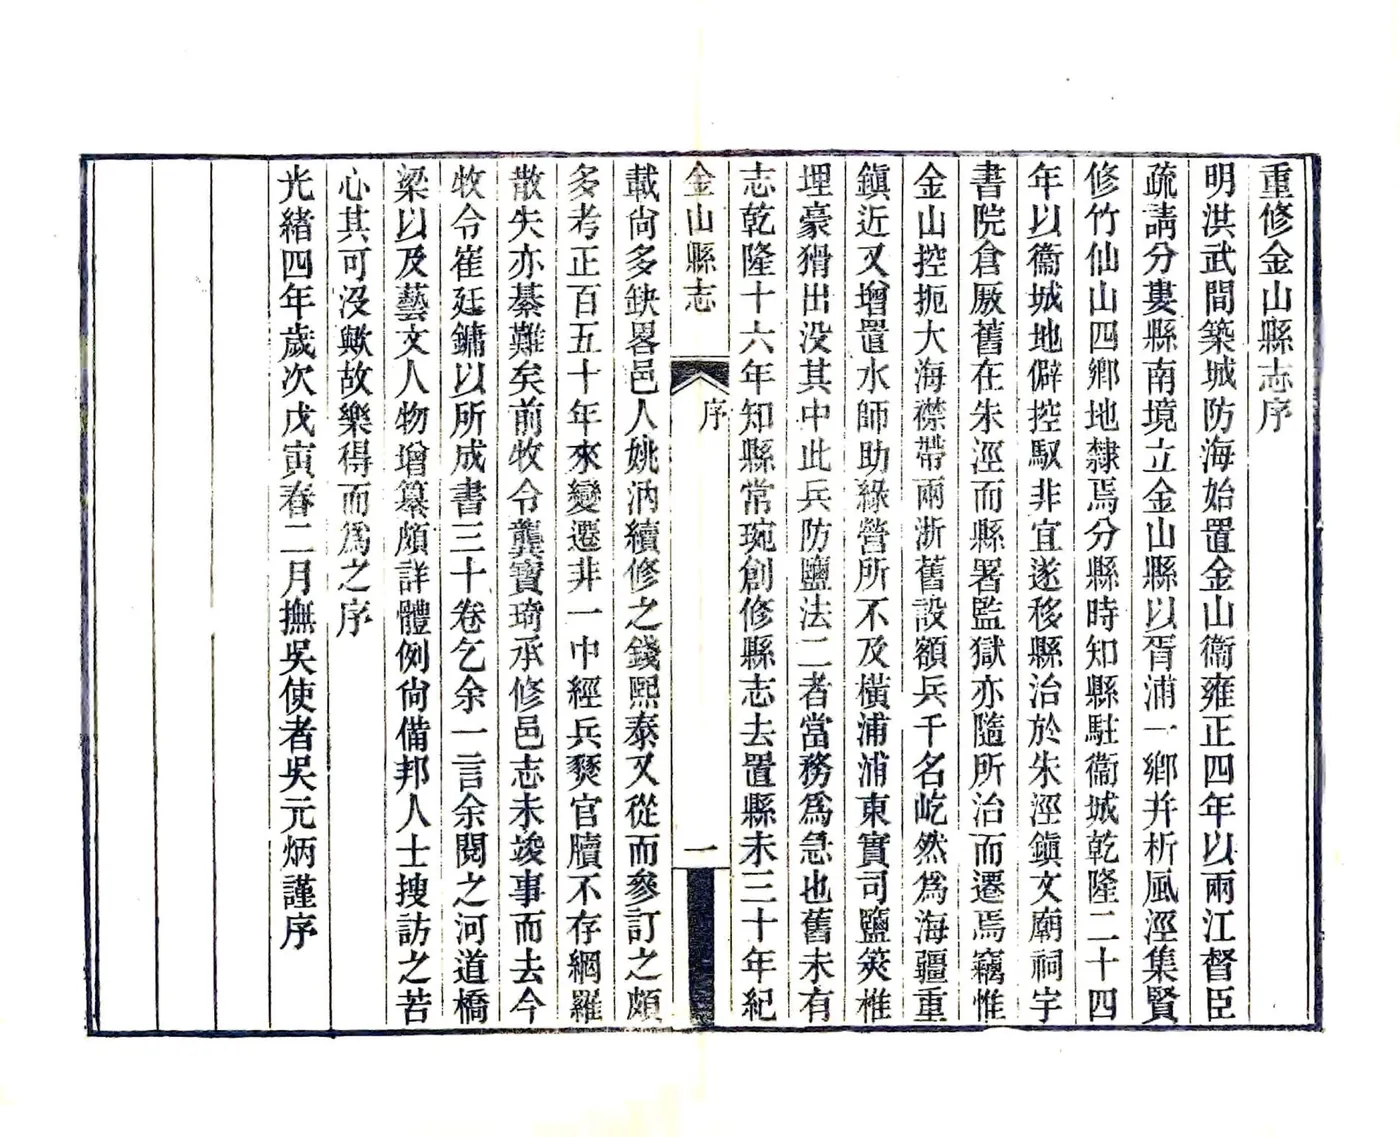 重修金山縣志序
明洪武間築城防海始置金山衞雍正四年以兩江督臣
疏請分婁縣南境立金山縣以胥浦一鄉幷析風涇集賢
修竹仙山四鄉地隸焉分縣時知縣駐衞城乾隆二十四
年以衞城地僻控馭非宜遂移縣治於朱涇鎮文廟祠宇
書院倉厫舊在朱涇而縣署監獄亦隨所治而遷焉竊惟
金山控扼大海襟帶兩浙舊設額兵千名屹然爲海疆重
鎭近又增置水師助綠營所不及橫浦浦東實司鹽筴椎
埋豪猾出没其中此兵防鹽法二者當務爲急也舊未有
志乾隆十六年知縣常琬創修縣志去置縣未三十年紀
金山縣志
序
一
載尙多缺畧邑人姚汭續修之錢熙泰又從而參訂之頗
多考正百五十年來變遷非一中經兵燹官牘不存網羅
散失亦綦難矣前牧令龔寶琦承修邑志未竣事而去今
牧令崔廷鏞以所成書三十卷乞余一言余閱之河道橋
梁以及藝文人物增纂頗詳體例尙備邦人士搜訪之苦
心其可没歟故樂得而爲之序
光緒四年歲次戊寅春二月撫吳使者吳元炳謹序